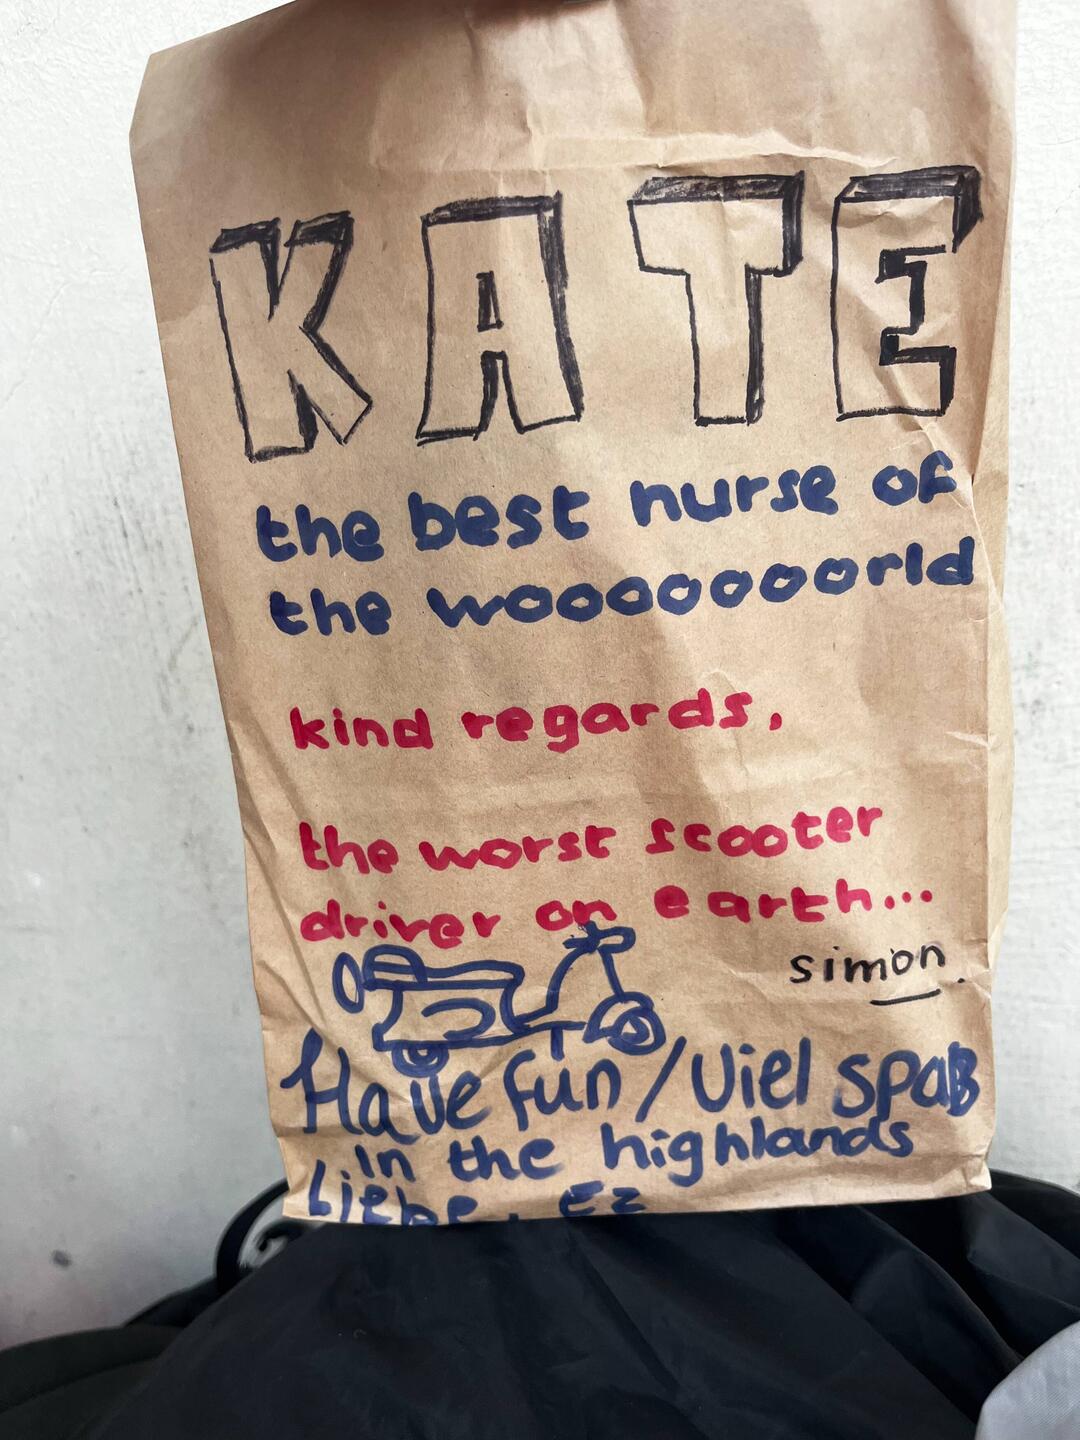 KATE
the best nurse of
the woooooooorld
kind regards,
the worst scooter
driver on earth...
simon.
Have fun / Viel spaß
in the highlands
Liebe, Ez